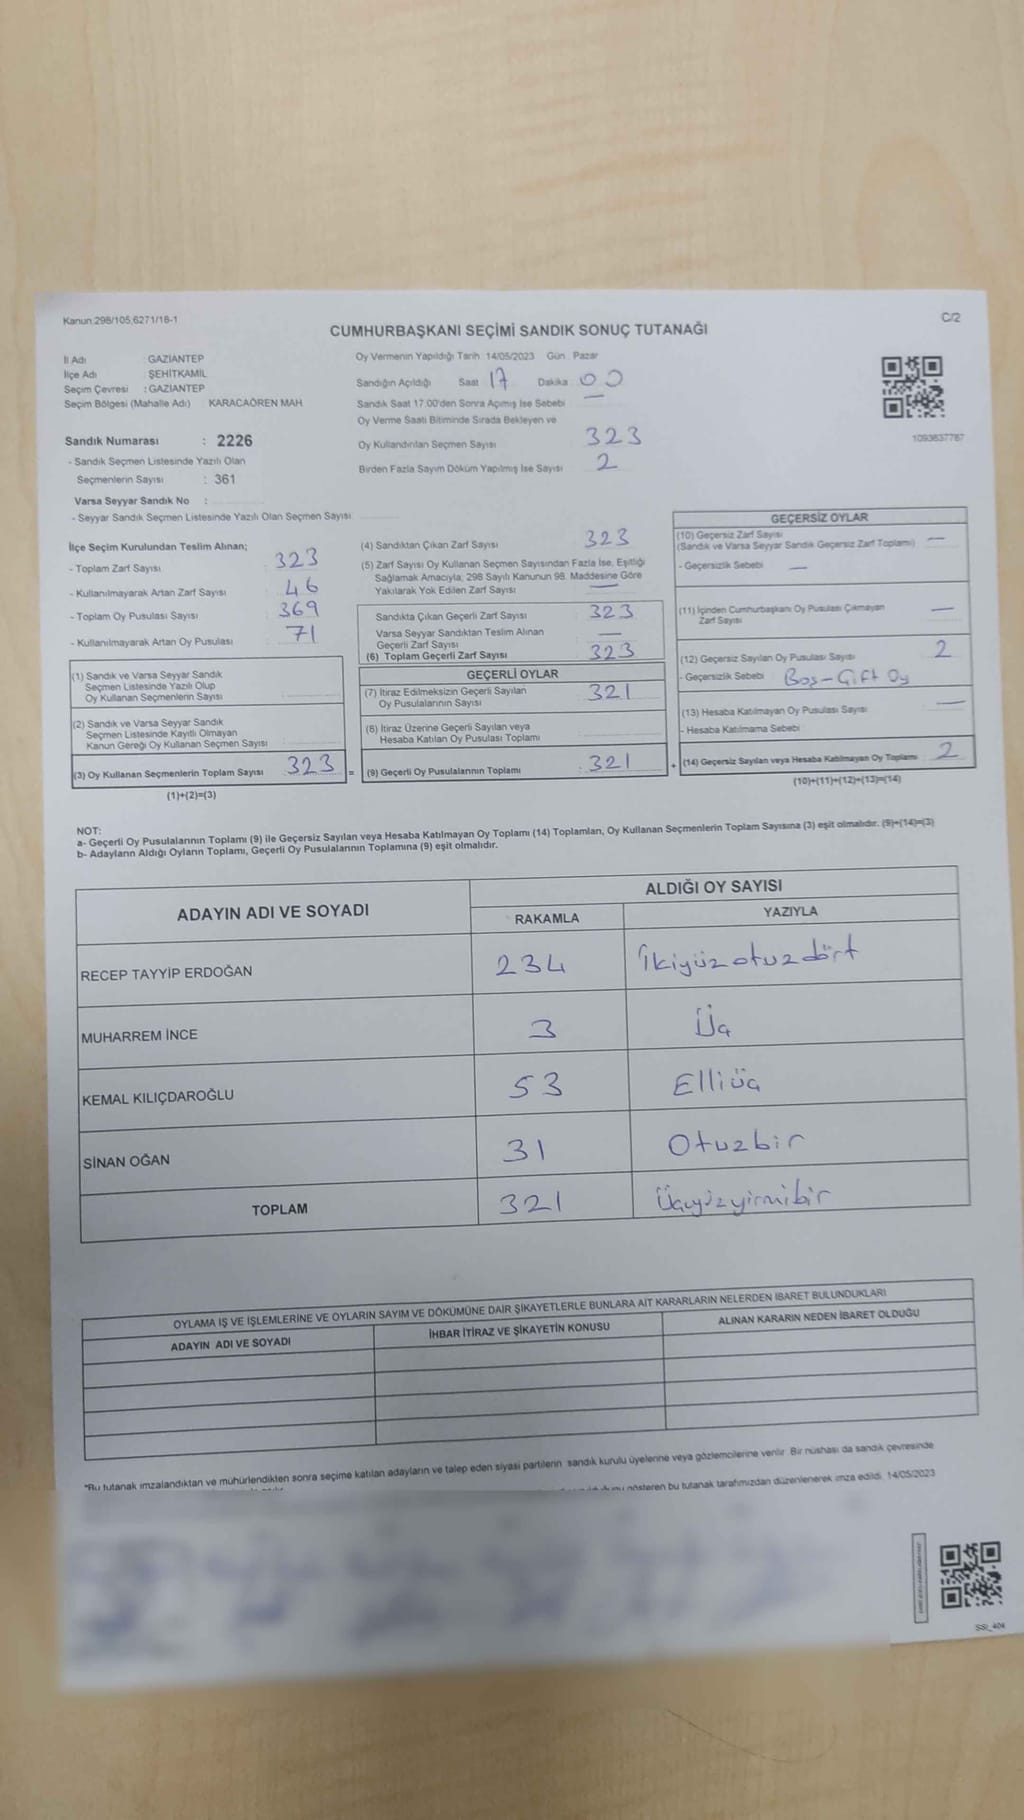 Kanun:298/105,6271/18-1
C/2
CUMHURBAŞKANI SEÇİMİ SANDIK SONUÇ TUTANAĞI
İl Adı : GAZİANTEP
İlçe Adı : ŞEHİTKAMİL
Seçim Çevresi : GAZİANTEP
Seçim Bölgesi (Mahalle Adı) KARACAÖREN MAH.
Oy Vermenin Yapıldığı Tarih 14/05/2023 Gün Pazar
Sandığın Açıldığı Saat 17 Dakika 00
Sandık Saat 17:00'den Sonra Açımış İse Sebebi —
Oy Verme Saati Bitiminde Sırada Bekleyen ve
Oy Kullandırılan Seçmen Sayısı 323
Birden Fazla Sayım Döküm Yapılmış İse Sayısı 2
1093637767
Sandık Numarası : 2226
- Sandık Seçmen Listesinde Yazılı Olan
Seçmenlerin Sayısı : 361
Varsa Seyyar Sandık No :
- Seyyar Sandık Seçmen Listesinde Yazılı Olan Seçmen Sayısı
İlçe Seçim Kurulundan Teslim Alınan;
- Toplam Zarf Sayısı 323
- Kullanılmayarak Artan Zarf Sayısı 46
- Toplam Oy Pusulası Sayısı 369
- Kullanılmayarak Artan Oy Pusulası 71
(1) Sandık ve Varsa Seyyar Sandık
Seçmen Listesinde Yazılı Olup
Oy Kullanan Seçmenlerin Sayısı
(2) Sandık ve Varsa Seyyar Sandık
Seçmen Listesinde Kayıtlı Olmayan
Kanun Gereği Oy Kullanan Seçmen Sayısı
(3) Oy Kullanan Seçmenlerin Toplam Sayısı 323 =
(1)+(2)=(3)
(4) Sandıktan Çıkan Zarf Sayısı 323
(5) Zarf Sayısı Oy Kullanan Seçmen Sayısından Fazla İse, Eşitliği
Sağlamak Amacıyla; 298 Sayılı Kanunun 98. Maddesine Göre
Yakılarak Yok Edilen Zarf Sayısı —
Sandıkta Çıkan Geçerli Zarf Sayısı 323
Varsa Seyyar Sandıktan Teslim Alınan
Geçerli Zarf Sayısı —
(6) Toplam Geçerli Zarf Sayısı 323
GEÇERLİ OYLAR
(7) İtiraz Edilmeksizin Geçerli Sayılan
Oy Pusulalarının Sayısı 321
(8) İtiraz Üzerine Geçerli Sayılan veya
Hesaba Katılan Oy Pusulası Toplamı
(9) Geçerli Oy Pusulalarının Toplamı : 321 +
GEÇERSİZ OYLAR
(10) Geçersiz Zarf Sayısı —
(Sandık ve Varsa Seyyar Sandık Geçersiz Zarf Toplamı)
- Geçersizlik Sebebi —
(11) İçinden Cumhurbaşkanı Oy Pusulası Çıkmayan
Zarf Sayısı —
(12) Geçersiz Sayılan Oy Pusulası Sayısı 2
- Geçersizlik Sebebi Boş-Çift Oy
(13) Hesaba Katılmayan Oy Pusulası Sayısı —
- Hesaba Katılmama Sebebi
(14) Geçersiz Sayılan veya Hesaba Katılmayan Oy Toplamı 2
(10)+(11)+(12)+(13)=(14)
NOT:
a- Geçerli Oy Pusulalarının Toplamı (9) ile Geçersiz Sayılan veya Hesaba Katılmayan Oy Toplamı (14) Toplamları, Oy Kullanan Seçmenlerin Toplam Sayısına (3) eşit olmalıdır. (9)+(14)=(3)
b- Adayların Aldığı Oyların Toplamı, Geçerli Oy Pusulalarının Toplamına (9) eşit olmalıdır.
ADAYIN ADI VE SOYADI
ALDIĞI OY SAYISI
RAKAMLA YAZIYLA
RECEP TAYYİP ERDOĞAN 234 İkiyüzotuzdört
MUHARREM İNCE 3 Üç
KEMAL KILIÇDAROĞLU 53 Elliüç
SİNAN OĞAN 31 Otuzbir
TOPLAM 321 Üçyüzyirmibir
OYLAMA İŞ VE İŞLEMLERİNE VE OYLARIN SAYIM VE DÖKÜMÜNE DAİR ŞİKAYETLERLE BUNLARA AİT KARARLARIN NELERDEN İBARET BULUNDUKLARI
ADAYIN ADI VE SOYADI İHBAR İTİRAZ VE ŞİKAYETİN KONUSU ALINAN KARARIN NEDEN İBARET OLDUĞU
*Bu tutanak imzalandıktan ve mühürlendikten sonra seçime katılan adayların ve talep eden siyasi partilerin sandık kurulu üyelerine veya gözlemcilerine verilir. Bir nüshası da sandık çevresinde
gösteren bu tutanak tarafımızdan düzenlenerek imza edildi. 14/05/2023
SSI_404